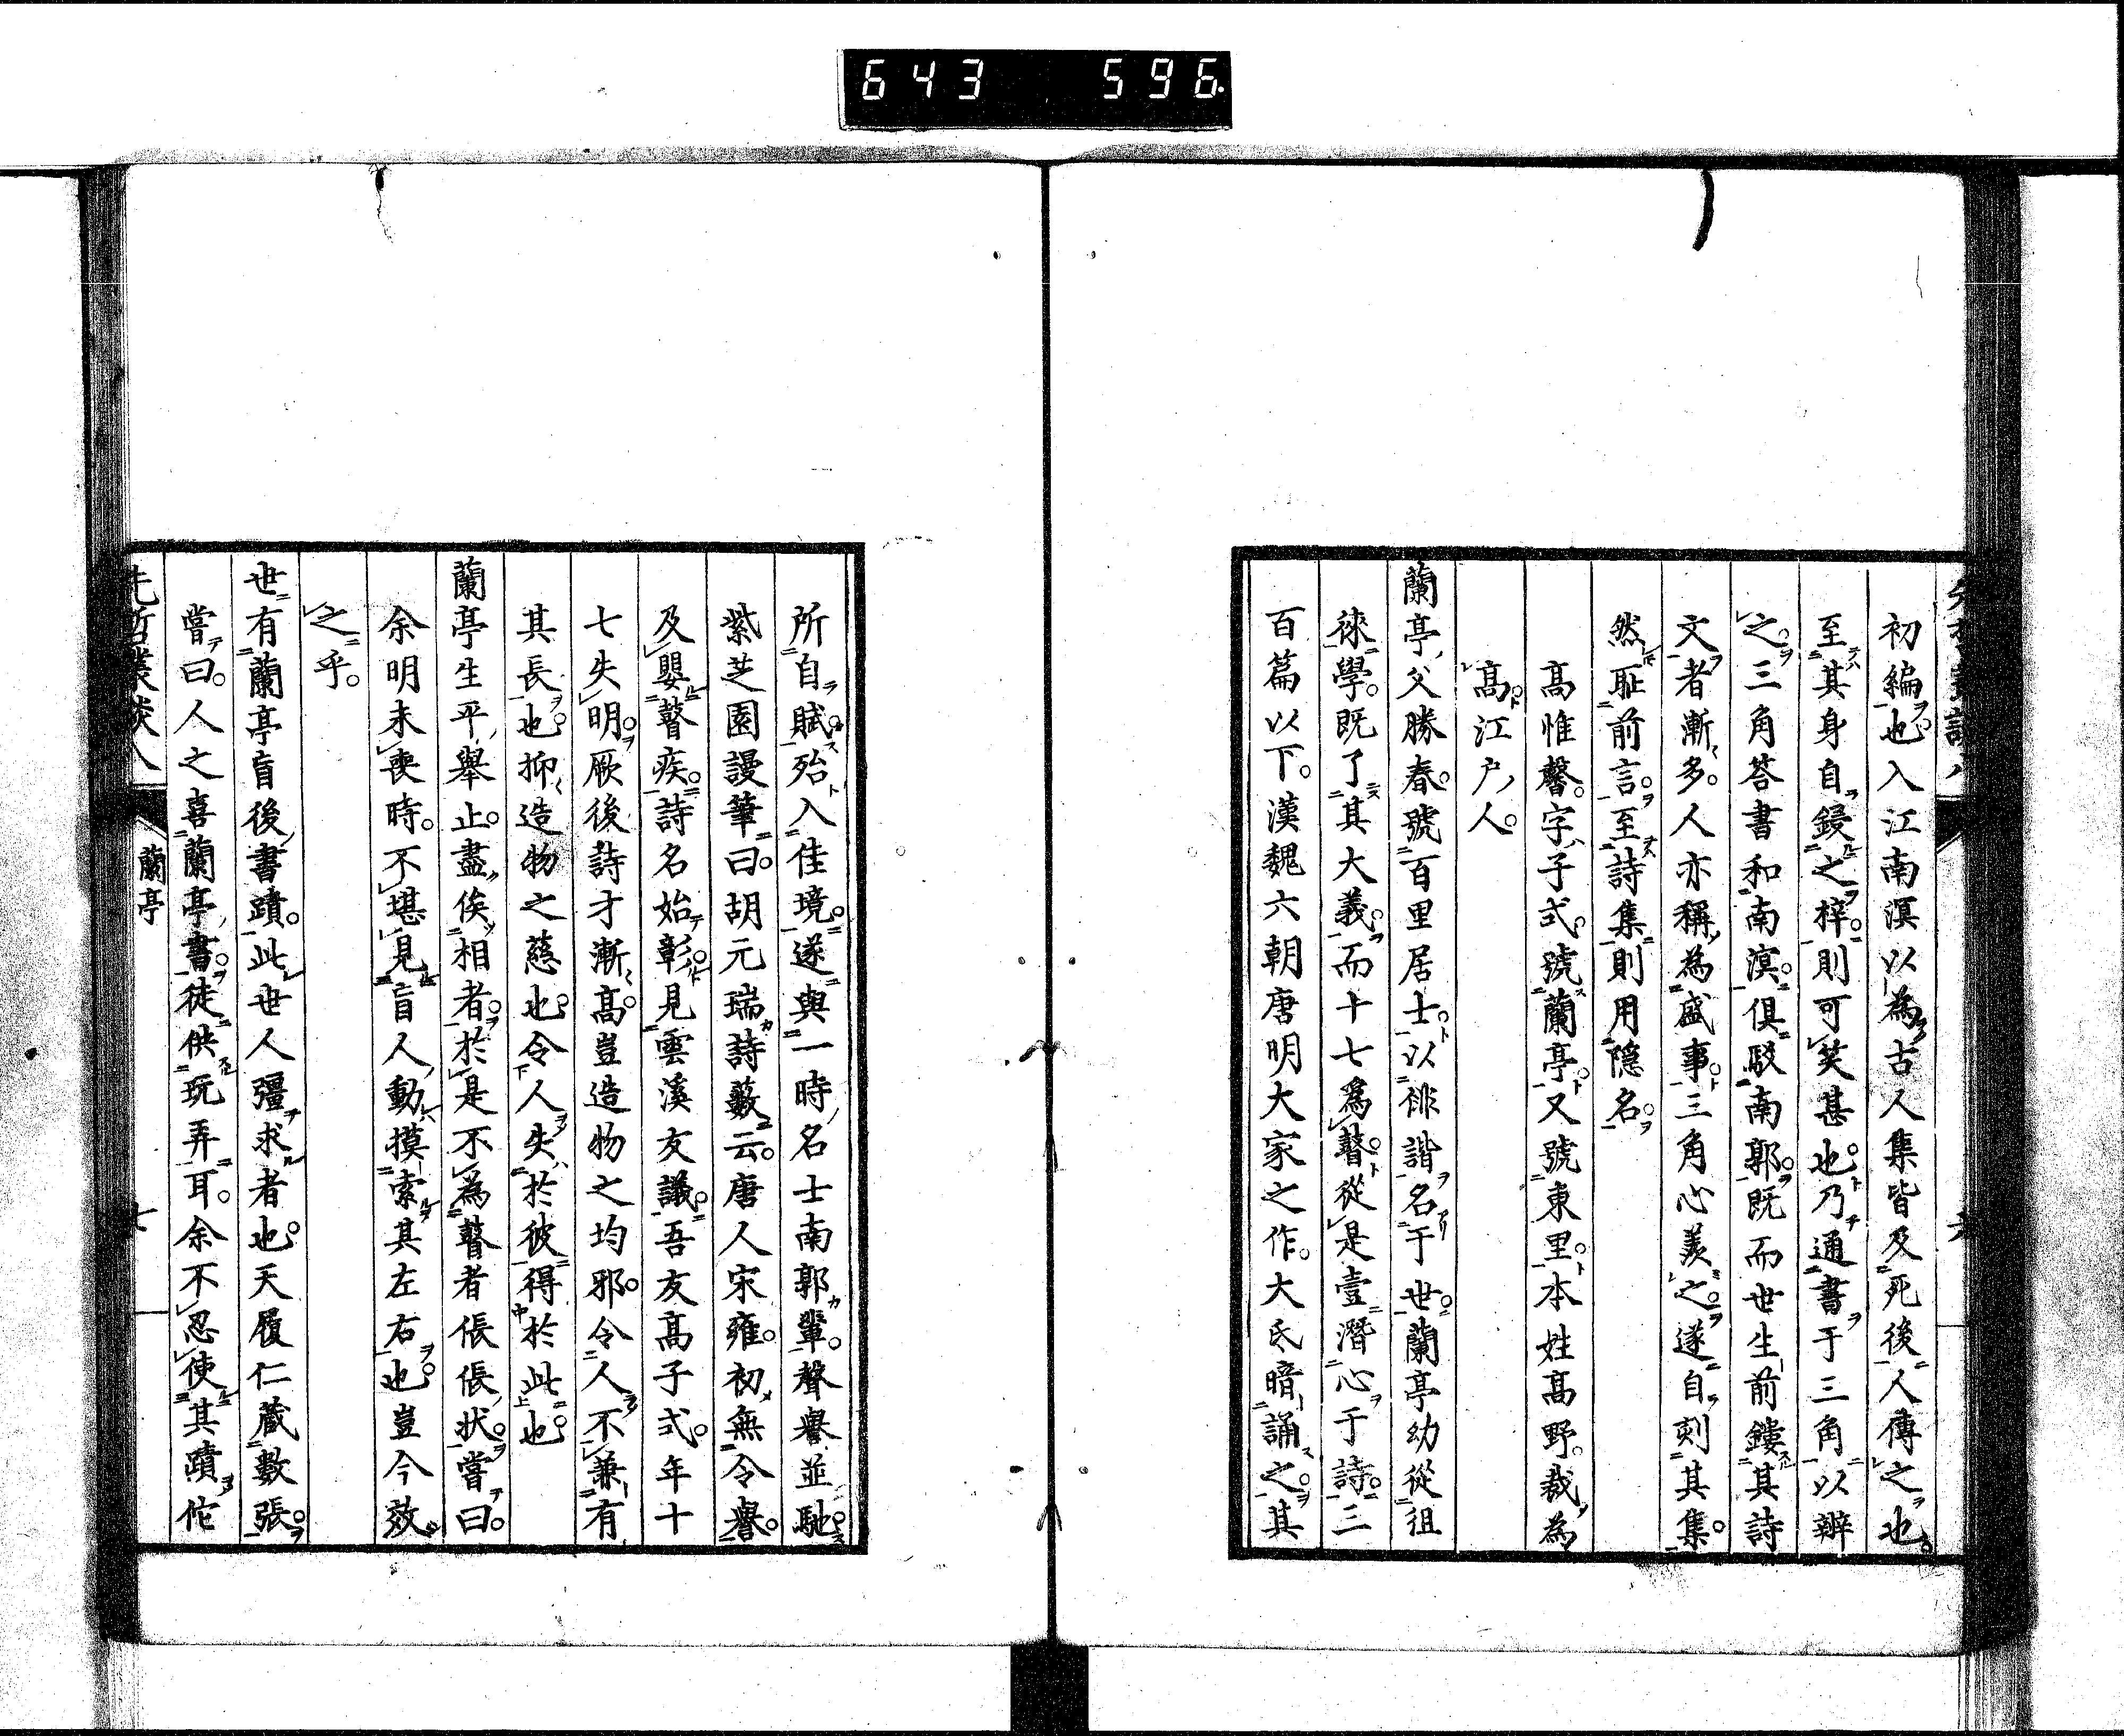 643 596.
初編也。入江南溟以為古人集皆及死後人傳之也。
至其身自鋟之梓。則可笑甚也。乃通書于三角以辨
之。三角答書和南溟。俱駁南郭。既而世生前鏤其詩
文者漸多。人亦稱為盛事。三角心羨之。遂自刻其集。
然耻前言。至詩集則用隱名。
高惟馨。字子式。號蘭亭。又號東里。本姓高野。裁為
高。江戶人。
蘭亭父勝春。號百里居士。以俳諧名于世。蘭亭幼從徂
徠學。既了其大義。而十七為瞽。從是壹潛心于詩。三
百篇以下。漢魏六朝唐明大家之作。大氐暗誦之。其
所自賦。殆入佳境。遂與一時名士南郭輩。聲譽並馳。
紫芝園謾筆曰。胡元瑞詩藪云。唐人宋雍。初無令譽。
及嬰瞽疾。詩名始彰。見雲溪友議。吾友高子式。年十
七失明。厥後詩才漸高。豈造物之均邪。令人不兼有
其長也。抑造物之慈也。令人失於彼得於此也。
蘭亭生平舉止。盡俟相者。於是不為瞽者倀倀狀。嘗曰。
余明未喪時。不堪見盲人動摸索其左右也。豈今效
之乎。
世有蘭亭盲後書蹟。此世人彊求者也。天履仁藏數張。
嘗曰。人之喜蘭亭書。徒供玩弄耳。余不忍使其蹟佗
先哲叢談八 蘭亭 七